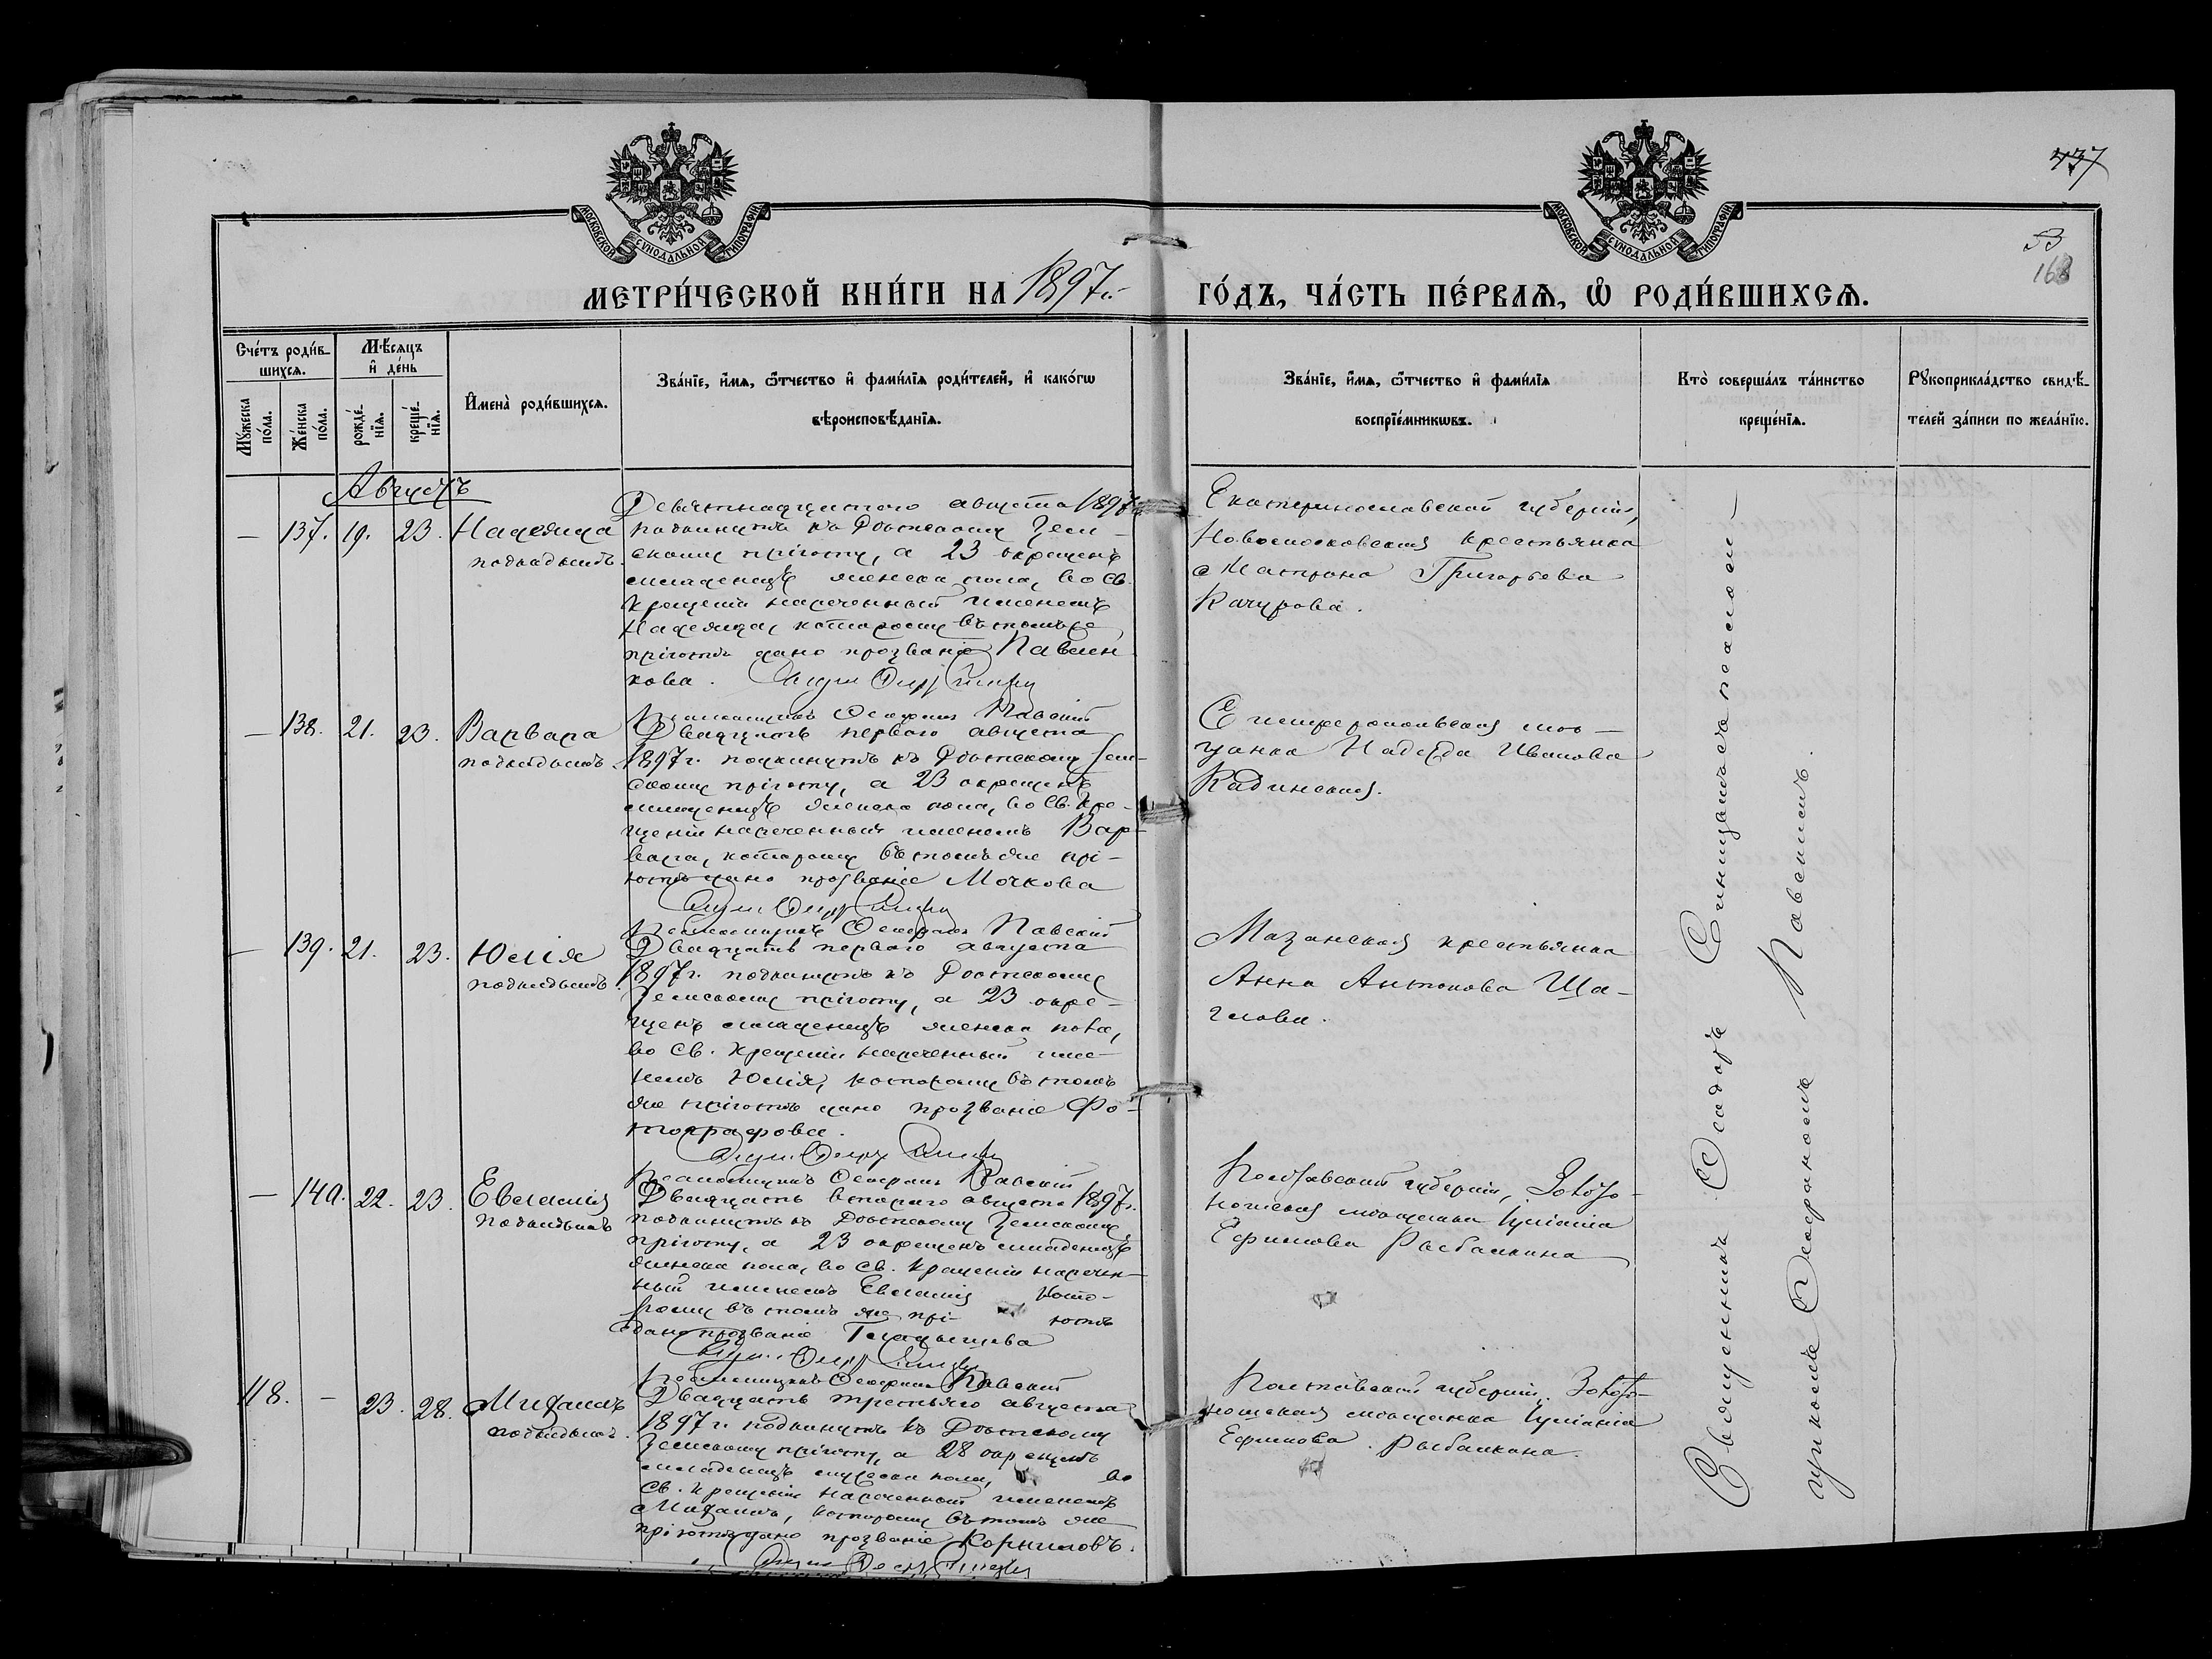 МОСКОВСКОЙ СѴНОДАЛЬНОЙ ТИПОГРАФІИ
МОСКОВСКОЙ СѴНОДАЛЬНОЙ ТИПОГРАФІИ
437
53
168
МЕТРИ́ЧЕСКОЙ КНИ́ГИ НА 1897й ГО́ДЪ, ЧА́СТЬ ПЕ́РВАЯ, Ѡ РОДИ́ВШИХСЯ.
Сче́тъ роди́в-
шихся.
Мꙋ́жеска по́ла.
Же́нска по́ла.
Мѣ́сяцъ и де́нь
рожде́-нїя.
креще́-нїя.
Имена̀ роди́вшихся.
Зва́нїе, и́мя, ѻ́тчество и фами́лїя роди́телей, и како́гѡ
вѣроисповѣ́данїя.
Зва́нїе, и́мя, ѻ́тчество и фами́лїя
воспрїе́мникѡвъ.
Кто̀ соверша́лъ та́инство
креще́нїя.
Рꙋкоприкла́дство свидѣ́-
телей за́писи по жела́нїю.
Августъ
— 137. 19. 23. Надежда
подкидышъ.
Девятнадцатаго августа 1897 г.
подкинутъ къ Дѣтскому Зем-
скому пріюту, а 23 окрещенъ
младенецъ женска пола, во Св.
Крещеніи нареченный именемъ
Надежда, которому въ томъ же
пріютѣ дано прозваніе Павлен
кова.
Псаломщикъ Павскій
Екатеринославской губерніи,
Новомосковская крестьянка
Матрона Григорьева
Качурова.
— 138. 21. 23. Варвара
подкидышъ.
Двадцать перваго августа
1897 г. подкинутъ къ Дѣтскому Зем-
скому пріюту, а 23 окрещенъ
младенецъ женска пола, во Св. Кре-
щеніи нареченный именемъ Вар-
вара, которому въ томъ же прі-
ютѣ дано прозваніе Мочкова
Псаломщикъ Павскій
Симферопольская мѣ-
щанка Надежда Иванова
Радинская.
— 139. 21. 23. Юлія
подкидышъ.
Двадцать перваго августа
1897 г. подкинутъ къ Дѣтскому
Земскому пріюту, а 23 окре-
щенъ младенецъ женска пола,
во Св. Крещеніи нареченный име-
немъ Юлія, которому въ томъ
же пріютѣ дано прозваніе Фо-
тографова.
Псаломщикъ Павскій
Мазанская крестьянка
Анна Антонова Ща-
глова.
— 140. 22. 23. Евлалія
подкидышъ
Двадцать втораго августа 1897 г.
подкинутъ къ Дѣтскому Земскому
пріюту, а 23 окрещенъ младенецъ
женска пола, во Св. Крещеніи наречен-
ный именемъ Евлалія кото-
рому въ томъ же прі- ютѣ
дано прозваніе
Псаломщикъ Павскій
Полтавской губерніи, Золото-
ношская мѣщанка Іуліанія
Ефимова Рыбалкина
118. — 23. 28. Михаилъ
подкидышъ.
Двадцать третьяго августа
1897 г. подкинутъ къ Дѣтскому
Земскому пріюту, а 28 окрещенъ
младенецъ мужеска пола, во
Св. Крещеніи нареченный именемъ
Михаилъ, которому въ томъ же
пріютѣ дано прозваніе Корниловъ.
Полтавской губерніи, Золото-
ношская мѣщанка Іуліанія
Ефимова Рыбалкина.
Священникъ
Павскимъ.